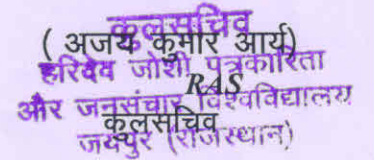 कुलसचिव
( अजय कुमार आर्य)
हरिदेव जोशी पत्रकारिता
RAS
और जनसंचार विश्वविद्यालय
कुलसचिव
जयपुर (राजस्थान)